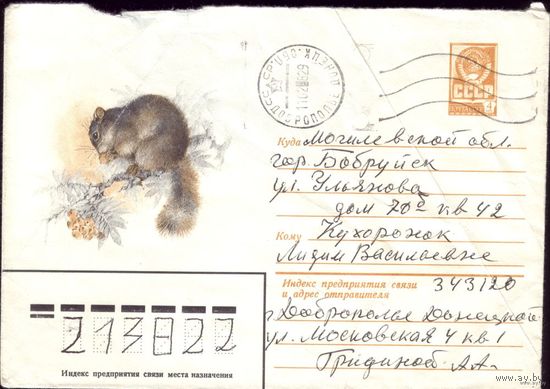 СССР
Куда Могилевской обл.
гор. Бобруйск
ул. Ульянова
дом 70б кв 42
Кому Кухоронок
Лидии Васильевне
Индекс предприятия связи
и адрес отправителя 343120
г Доброполье Донецкой
ул. Московская 4 кв 1
Гридинов. А.А.
213822
Индекс предприятия связи места назначения
www.ay.by